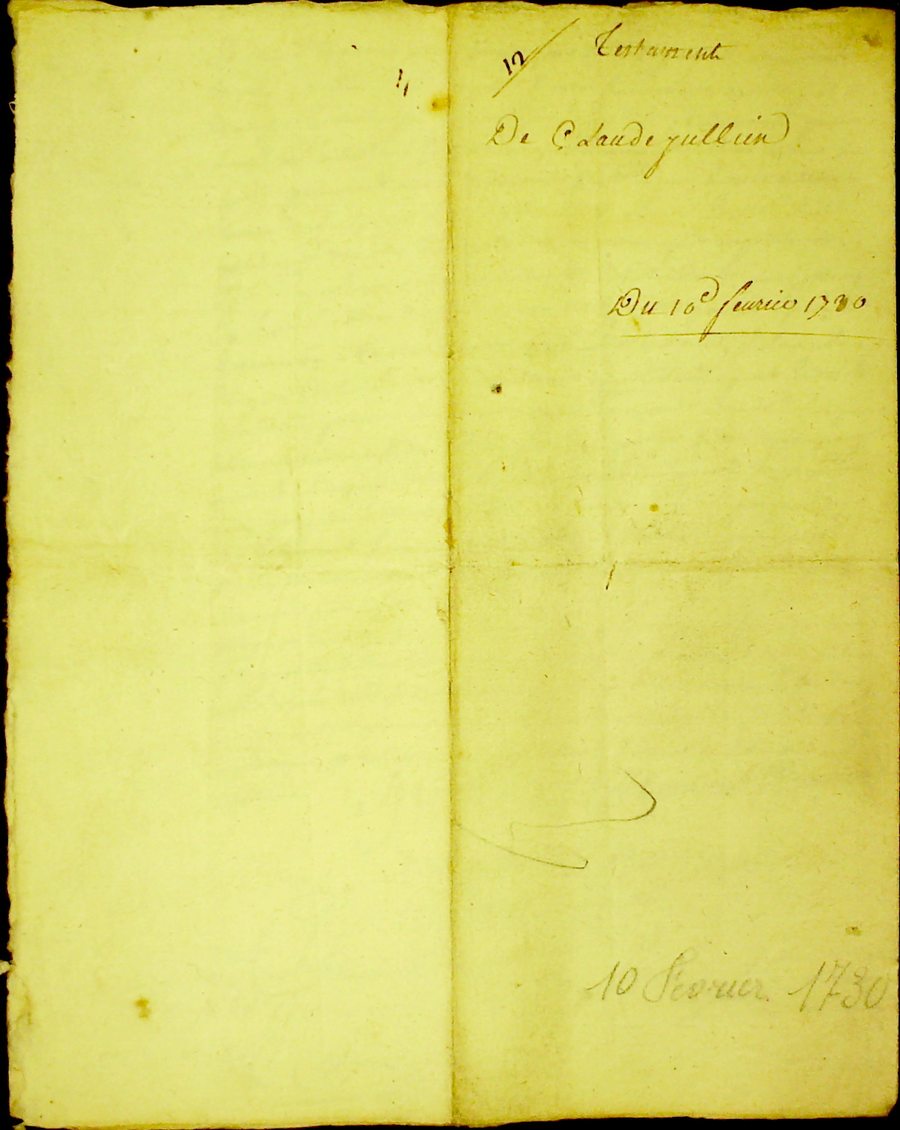 12/
Testament
De Claude jullien
Du 10e feurier 1730
10 Février 1730